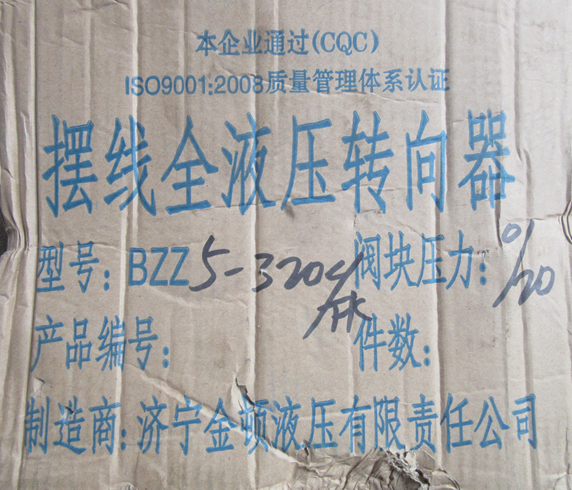 本企业通过(CQC)
ISO9001:2008质量管理体系认证
摆线全液压转向器
型号:BZZ5-320 阀块压力:
产品编号: 件数:
制造商:济宁金顿液压有限责任公司